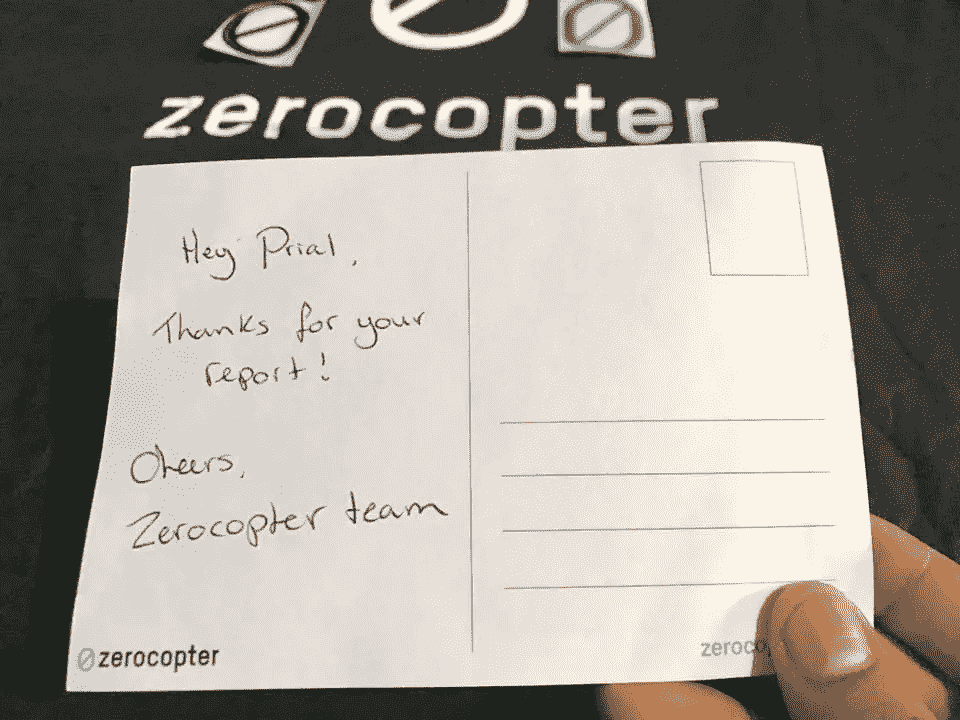 zerocopter
Hey Prial,
Thanks for your
report!
Cheers,
Zerocopter team
zerocopter
zeroco